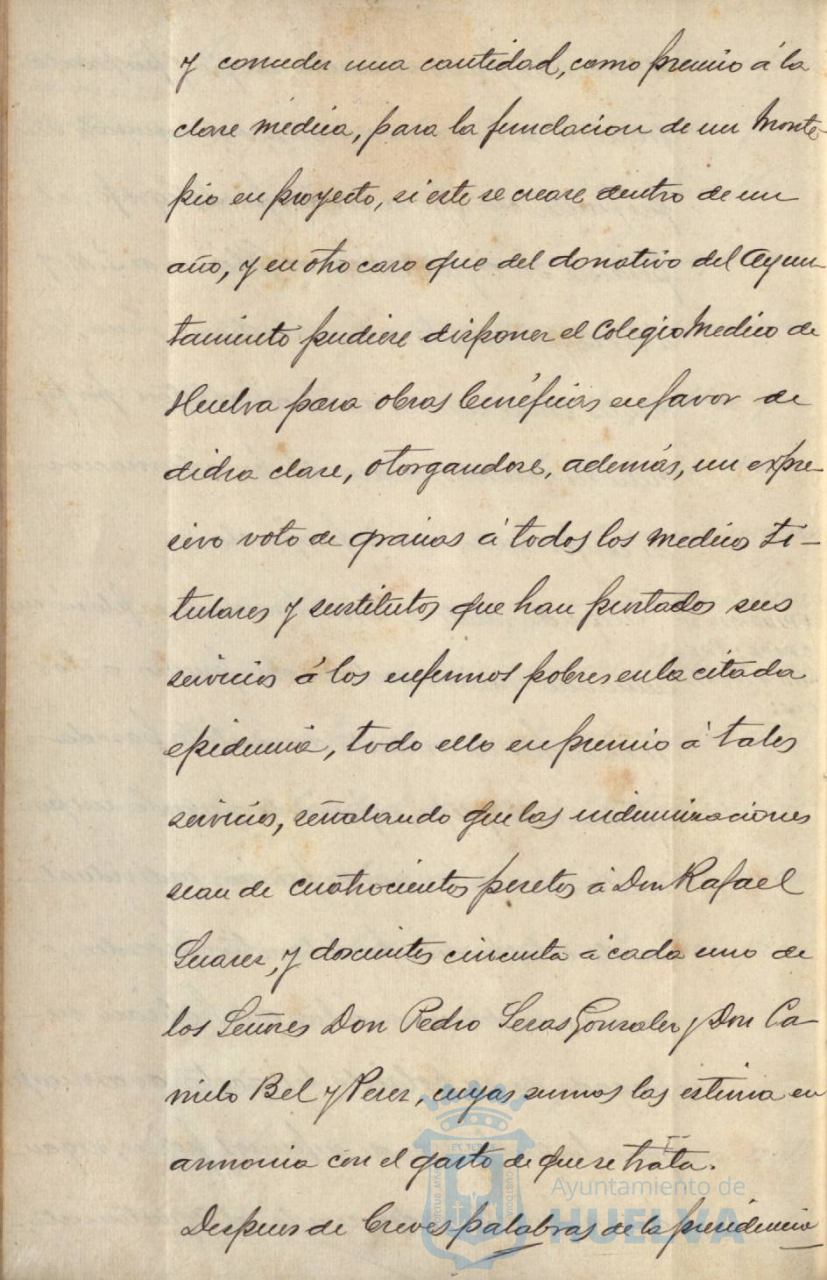 y conceder una cantidad, como premio á la
clase médica, para la fundacion de un Monte-
pio en proyecto, si este se crease dentro de un
año, y en otro caso que del donativo del Ayun-
tamiento pudiese disponer el Colegio Medico de
Huelva para obras benéficas en favor de
dicha clase, otorgandose, además, un expre-
sivo voto de gracias á todos los medicos ti-
tulares y sustitutos que han prestados sus
servicios á los enfermos pobres en la citada
epidemia, todo ello en premio á tales
servicios, señalando que las indemnizaciones
sean de cuatrocientas pesetas á Don Rafael
Suarez, y doscientas cincuenta á cada uno de
los Señores Don Pedro Seras Gonzalez y Don Ca-
milo Bel y Perez, cuyas sumas las estima en
armonia con el gasto de que se trata.
Despues de breves palabras de la presidencia
Ayuntamiento de
HUELVA